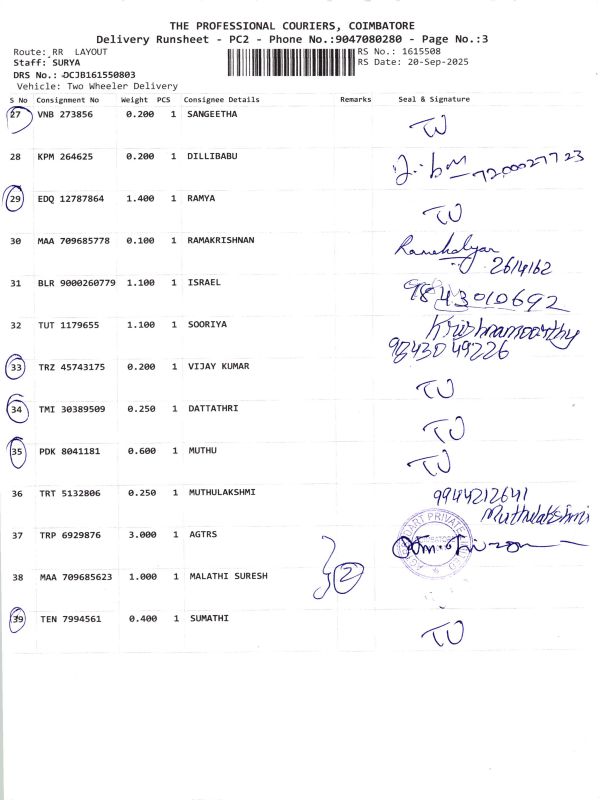 THE PROFESSIONAL COURIERS, COIMBATORE
Delivery Runsheet - PC2 - Phone No.:9047080280 - Page No.:3
Route: RR LAYOUT RS No.: 1615508
Staff: SURYA RS Date: 20-Sep-2025
DRS No.: DCJB161550803
Vehicle: Two Wheeler Delivery
S No Consignment No Weight PCS Consignee Details Remarks Seal & Signature
27 VNB 273856 0.200 1 SANGEETHA
28 KPM 264625 0.200 1 DILLIBABU 7200027723
29 EDQ 12787864 1.400 1 RAMYA
30 MAA 709685778 0.100 1 RAMAKRISHNAN
2614162
31 BLR 9000260779 1.100 1 ISRAEL 9843010692
32 TUT 1179655 1.100 1 SOORIYA Krishnamoorthy
9843049226
33 TRZ 45743175 0.200 1 VIJAY KUMAR
34 TMI 30389509 0.250 1 DATTATHRI
35 PDK 8041181 0.600 1 MUTHU
36 TRT 5132806 0.250 1 MUTHULAKSHMI 9944212641
Muthulakshmi
37 TRP 6929876 3.000 1 AGTRS
38 MAA 709685623 1.000 1 MALATHI SURESH 2
39 TEN 7994561 0.400 1 SUMATHI